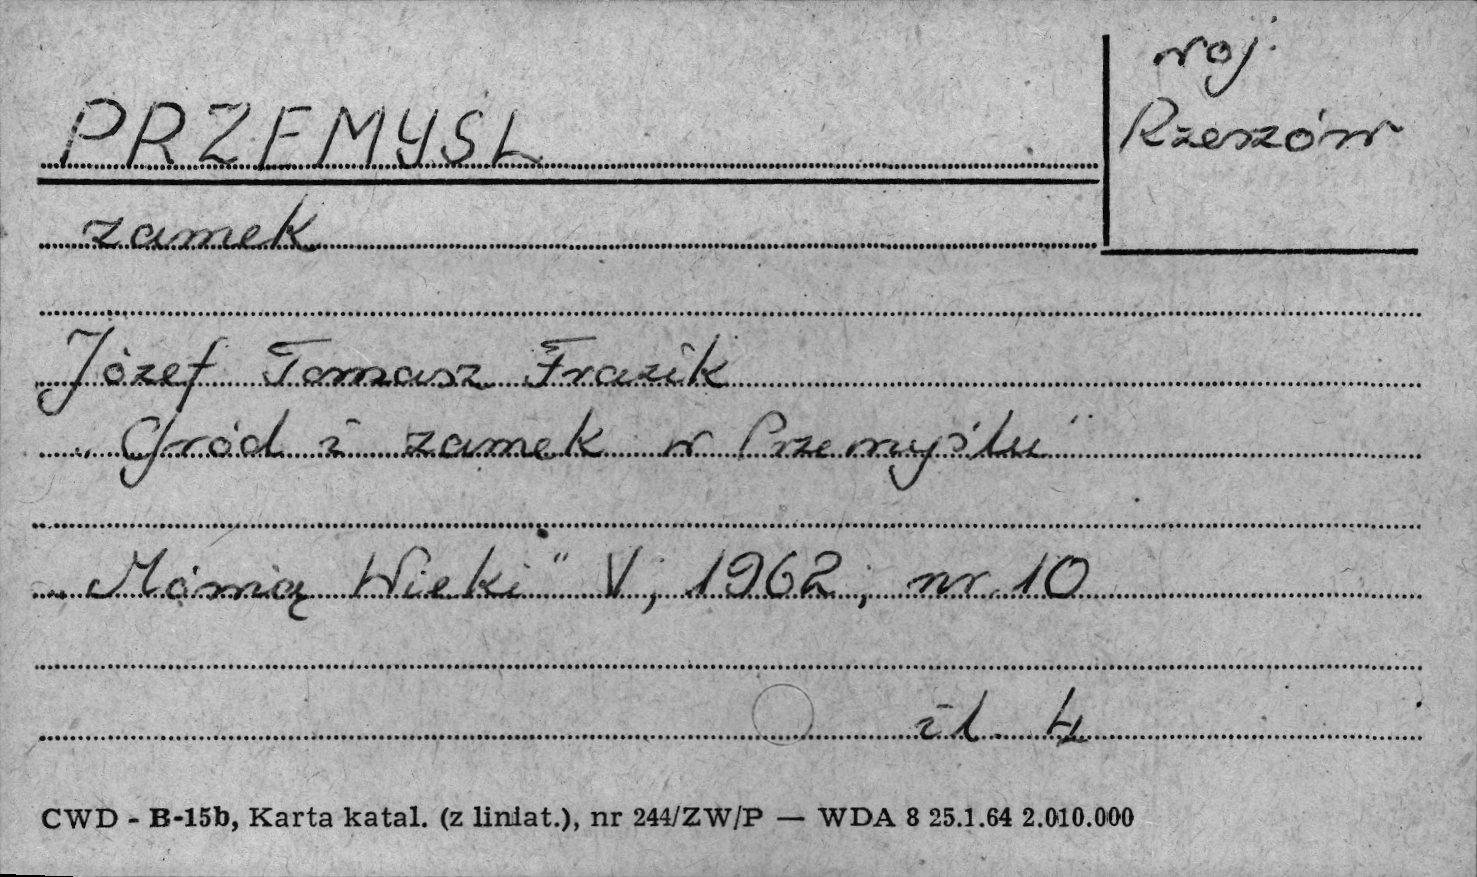 PRZEMYSL
woj.
Rzeszów
zamek
Józef Tomasz Frazik
„Gród i zamek w Przemyślu"
„Mówią Wieki" V, 1962, nr 10
il. 4
CWD - B-15b, Karta katal. (z liniat.), nr 244/ZW/P — WDA 8 25.1.64 2.010.000